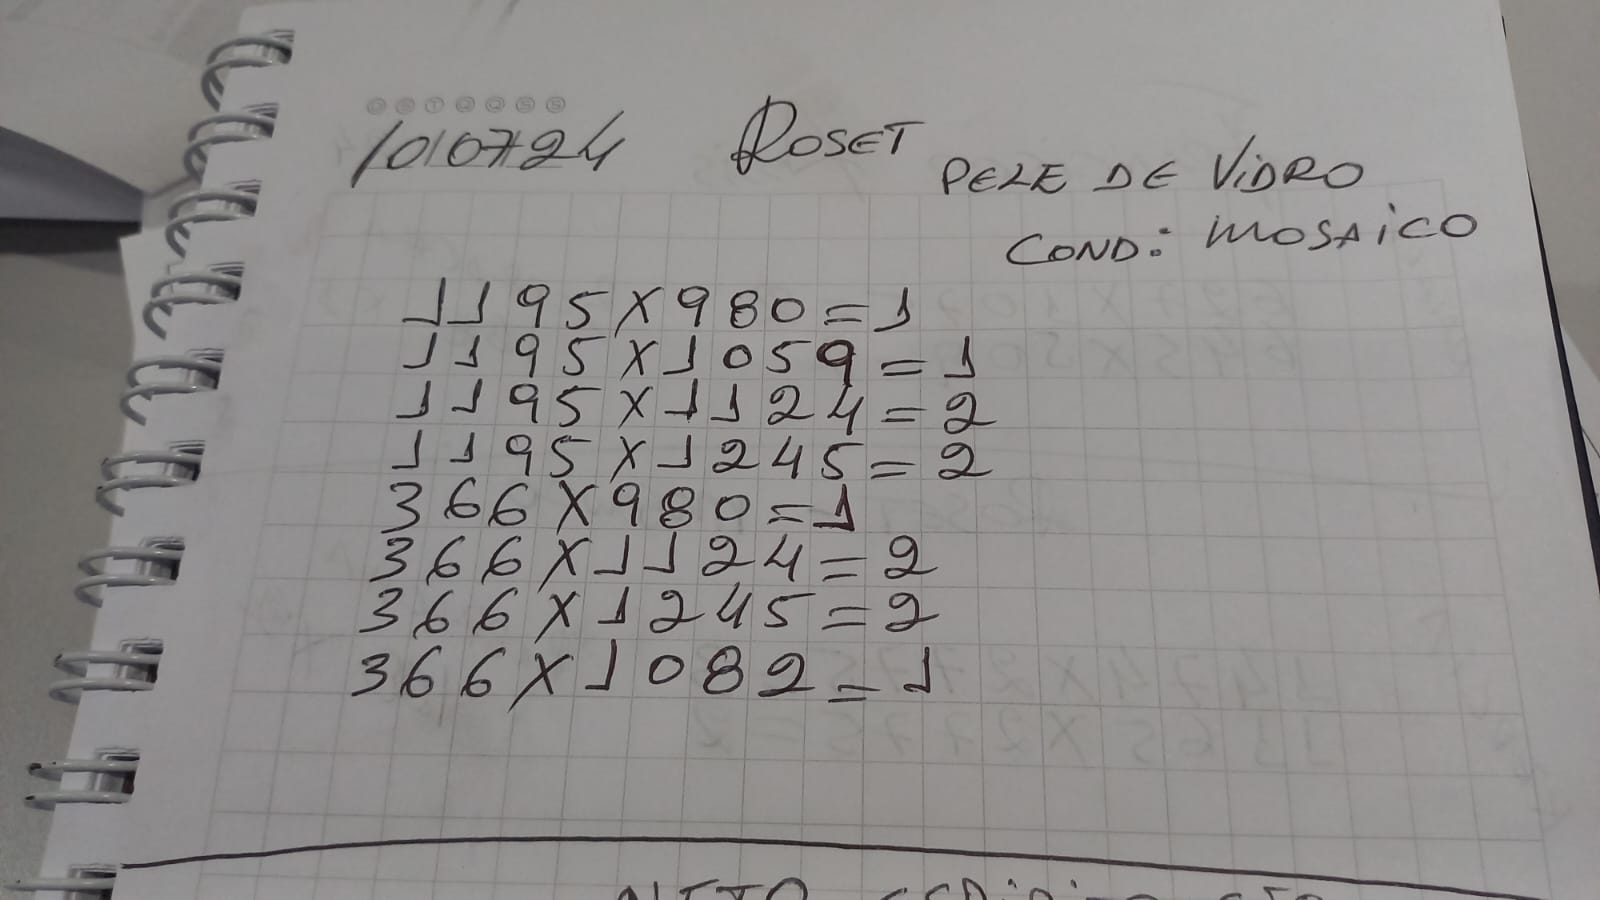 1010724 ROSET
PELE DE ViDRO
COND: MOSAiCO
1195X980=1
1195X1059=1
1195X1124=2
1195X1245=2
366X980=1
366X1124=2
366X1245=2
366X1082=1